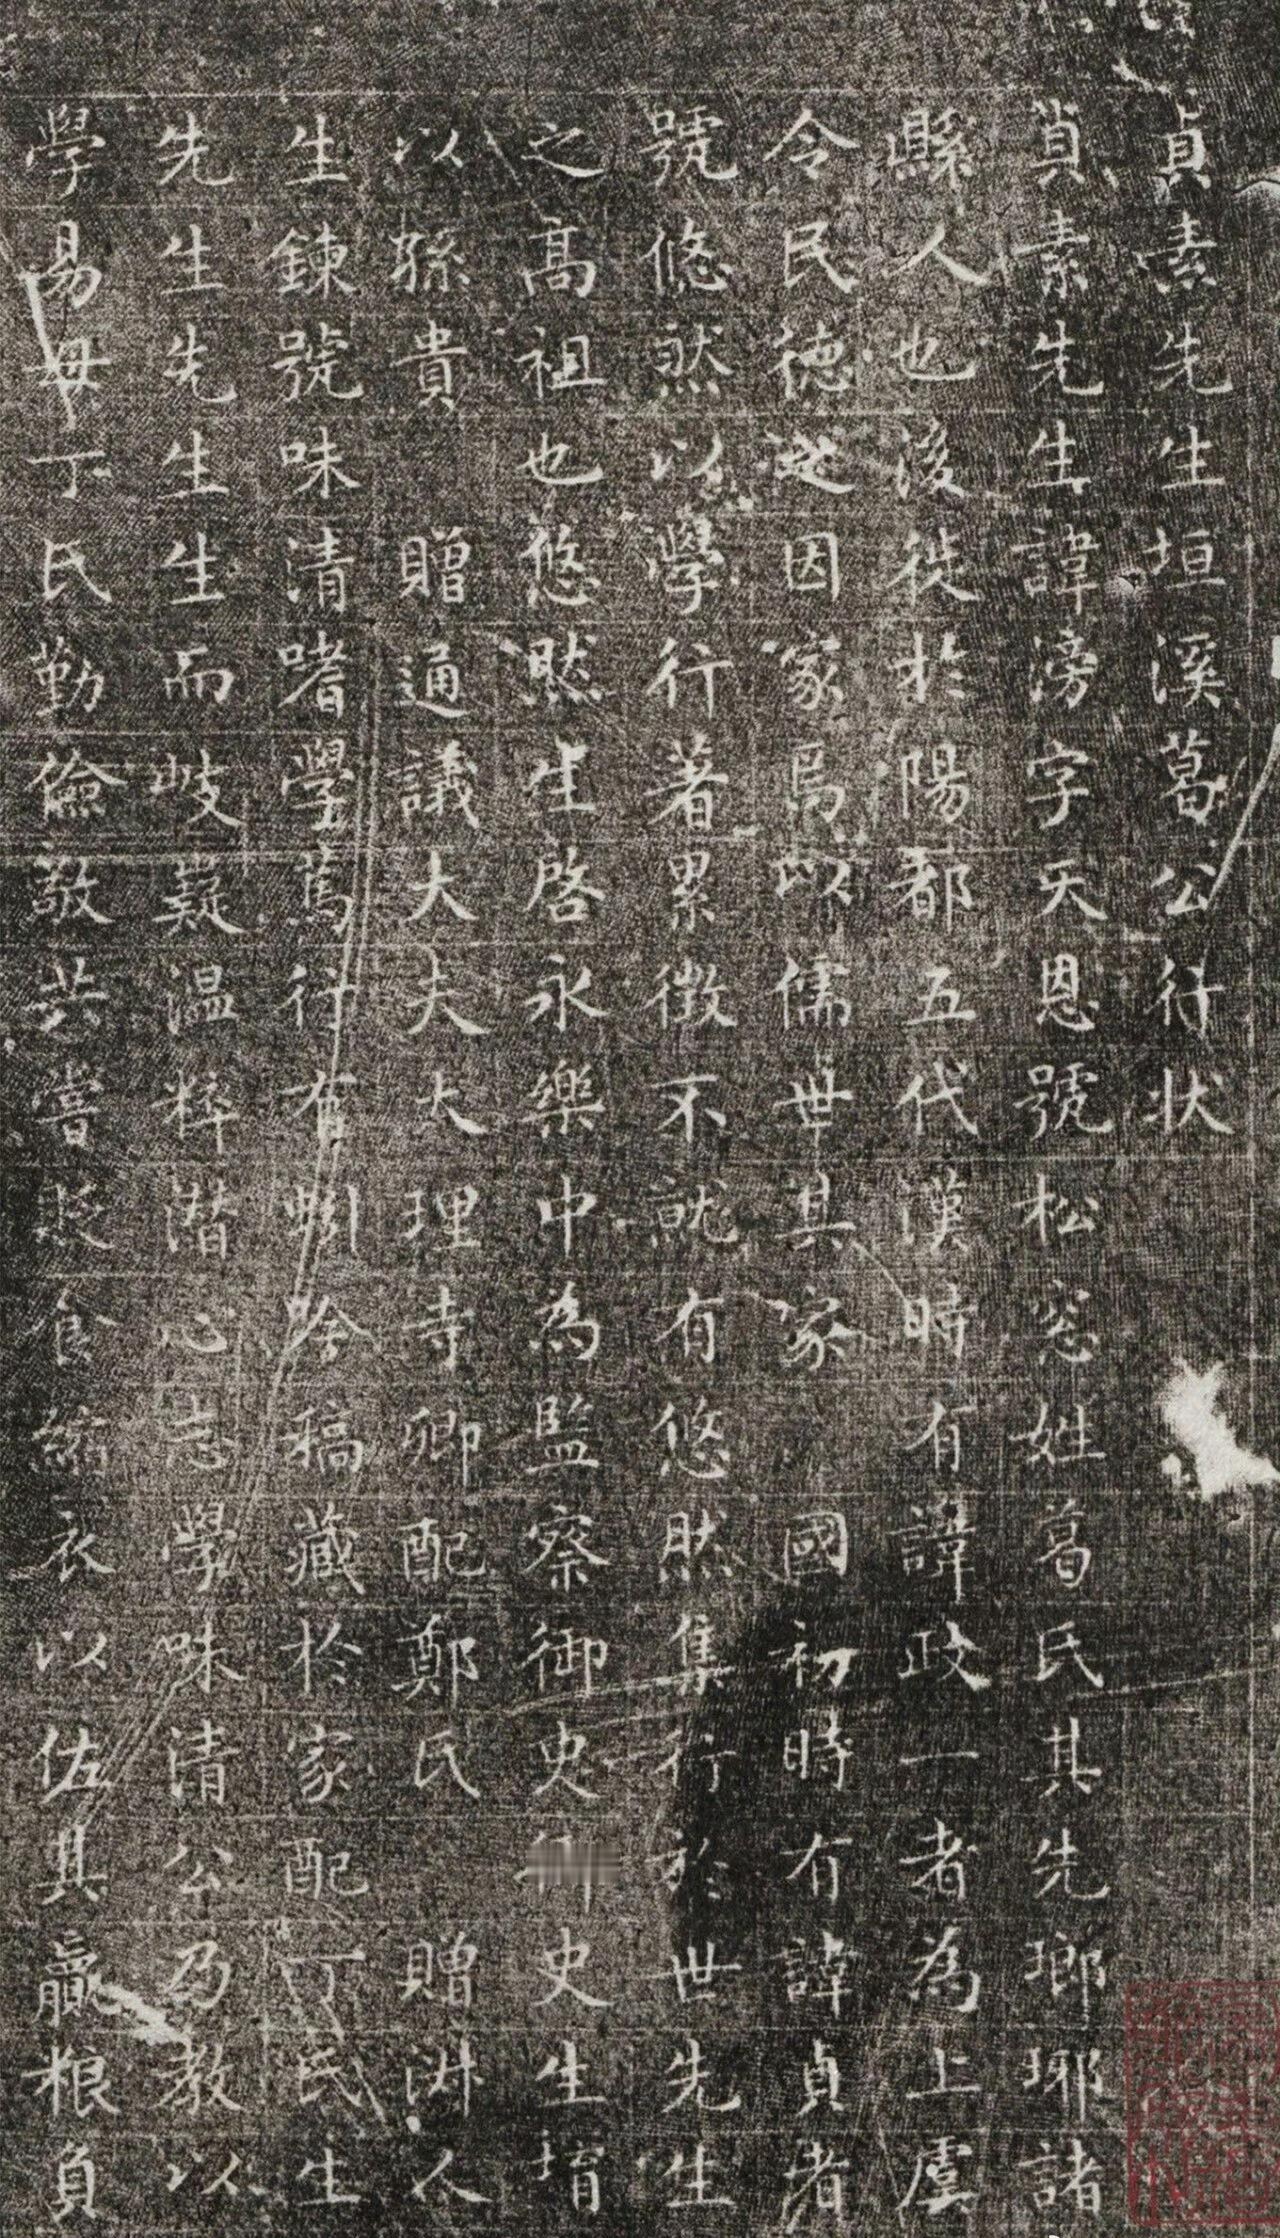 貞素先生垣溪葛公行状
貞素先生諱滂字天恩號松窓姓葛氏其先瑯琊諸
縣人也後徙於陽都五代漢時有諱政一者為上虞
令民德之因家焉以儒世其家國初時有諱貞者
號悠然以學行著累徵不就有悠然集行於世先生
之高祖也悠然生啓永樂中為監察御史史生堉
以孫貴贈通議大夫大理寺卿配鄭氏贈淑人
生鍊號味清嗜學篤行有蚓吟稿藏於家配丁氏生
先生先生生而岐嶷温粹潜心志學味清公乃教以
學易母丁氏勤儉敬共嘗貶食縮衣以佐其贏粮負